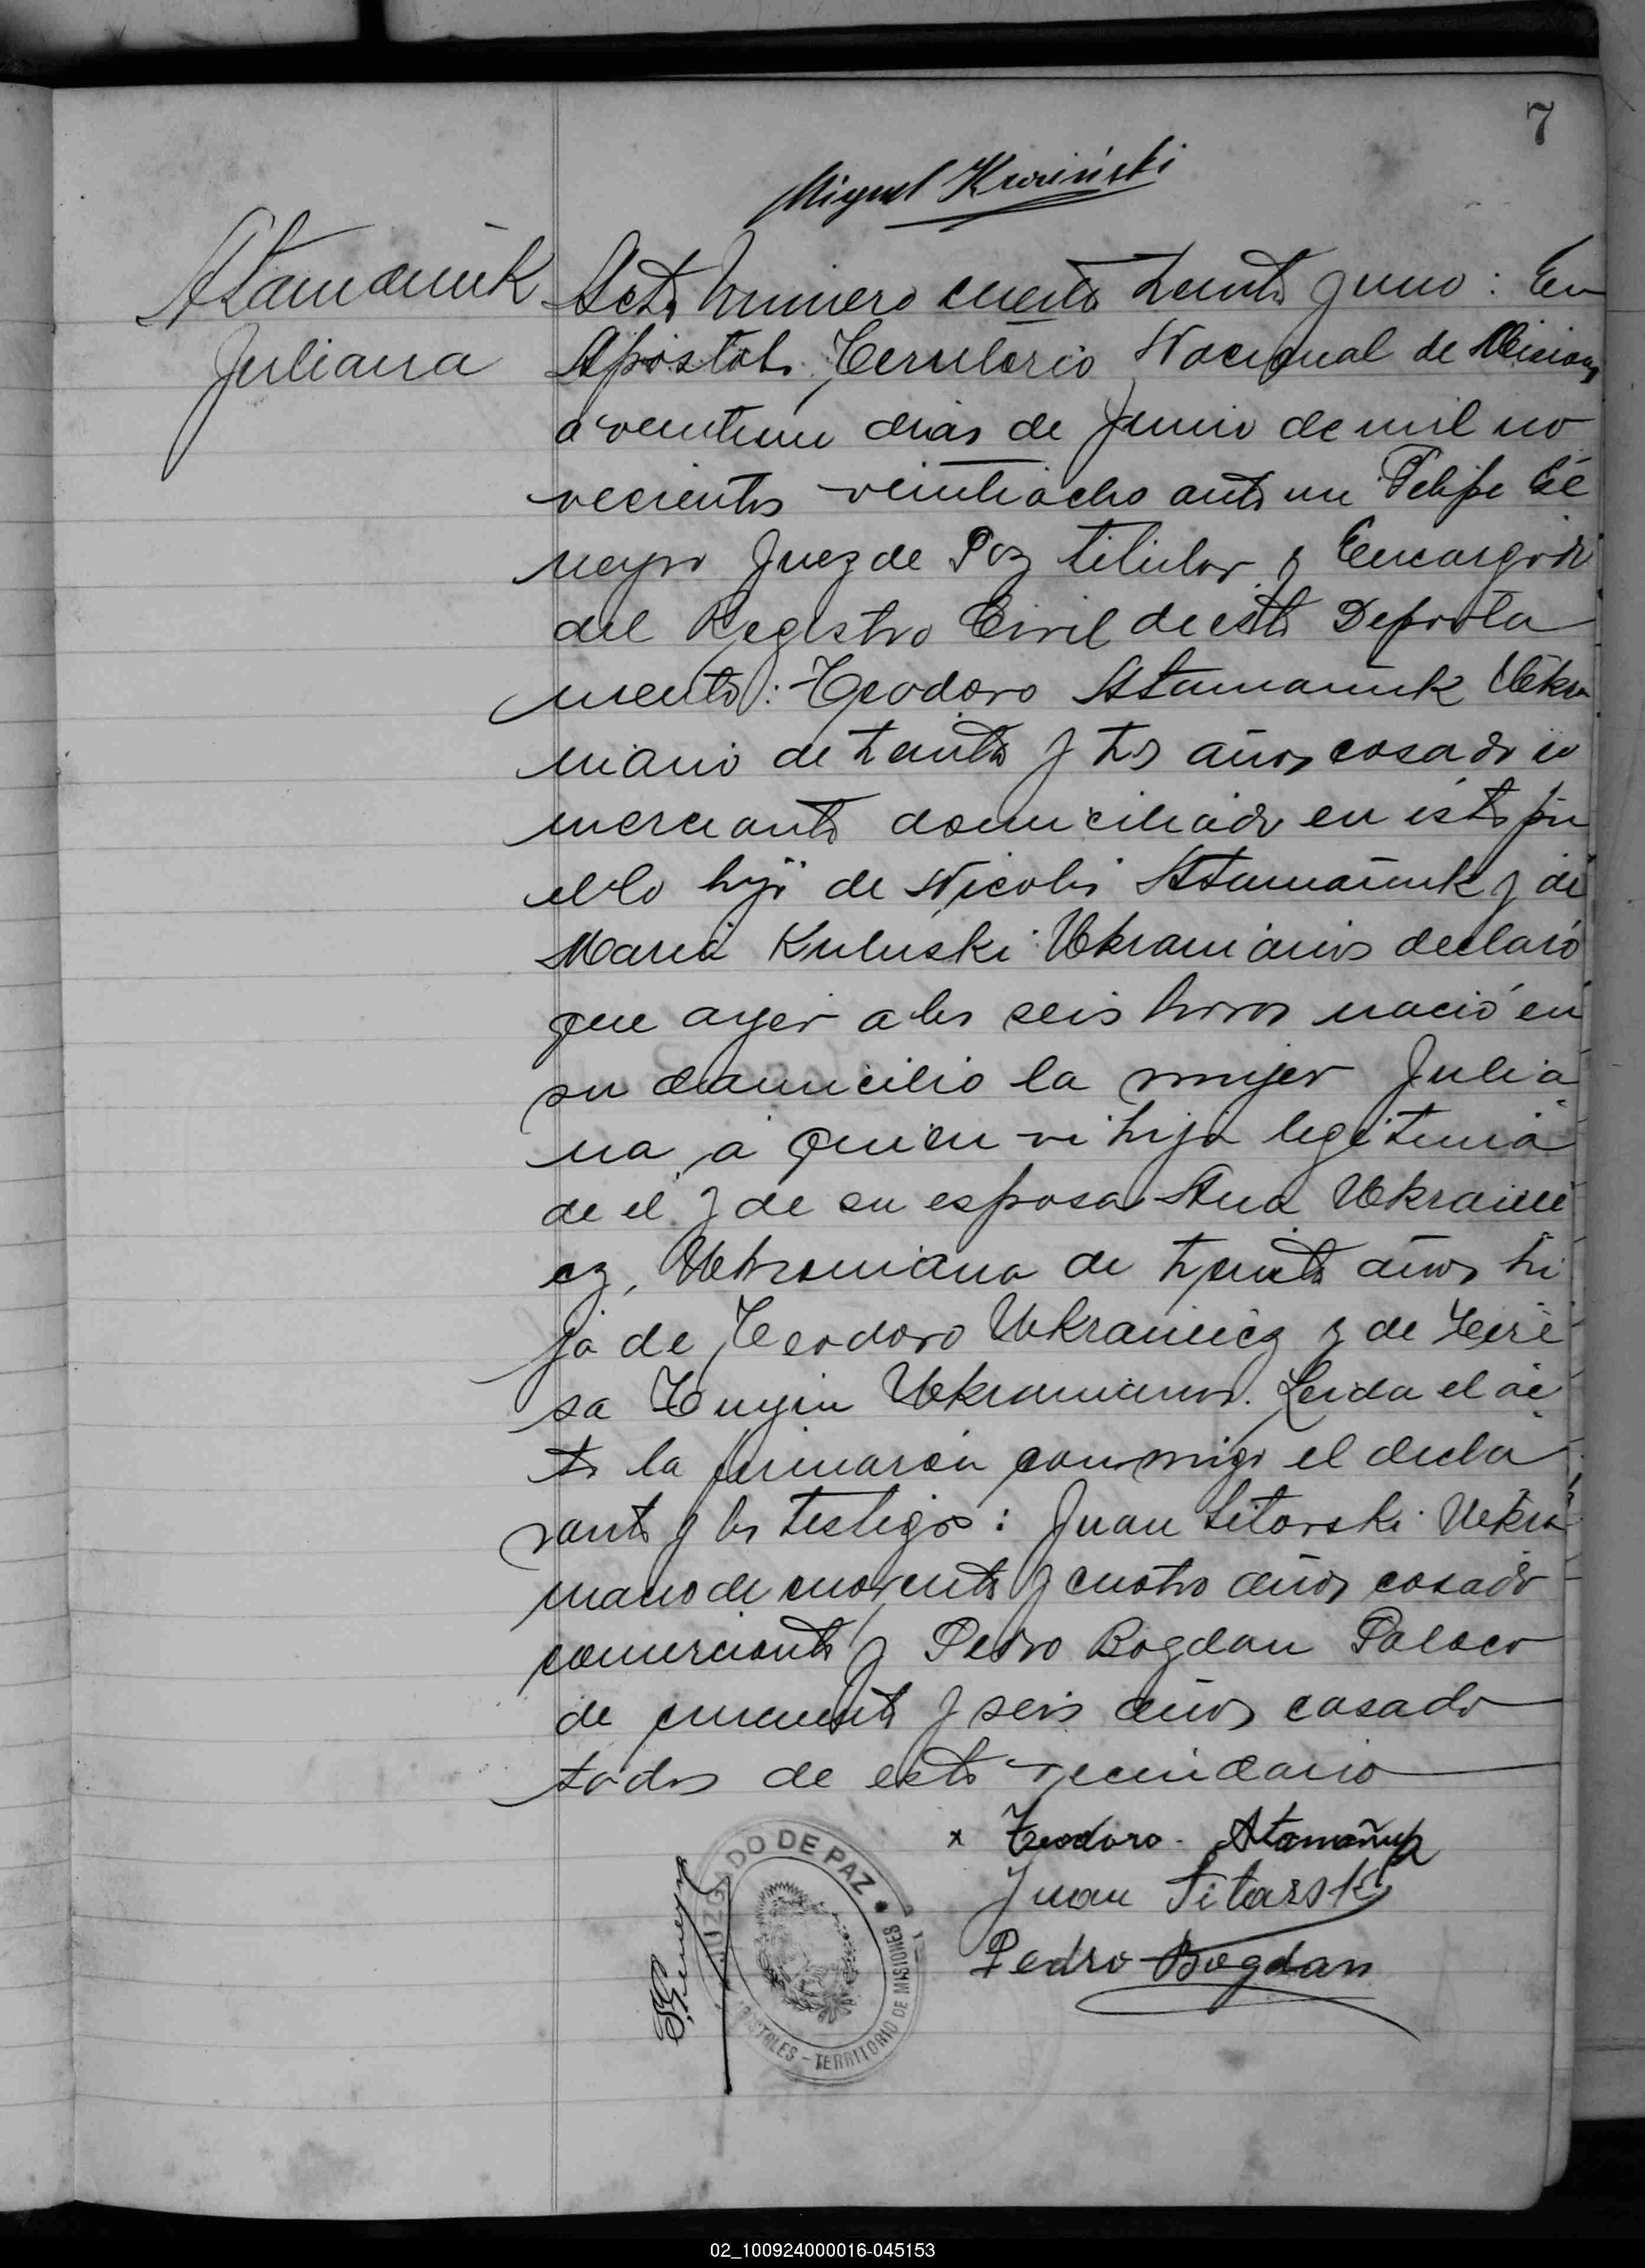 7
Miguel Krasiński
Atamañuk
Juliana
Acta Número ciento treinta y uno: En
Apostoles Territorio Nacional de Misiones
a veintiun dias de Junio de mil no
vecientos veintiocho ante mi Felipe
Juez de Paz titular y Encargado
del Registro Civil de este Departa
mento: Teodoro Atamañuk Ukra
niano de treinta y tres años casado co
merciante domiciliado en este pu
eblo hijo de Nicolás Atamañuk y de
Maria Kuluski Ukranianos declaró
que ayer a las seis horas nació en
su domicilio la mujer Julia
na a quien vi hija legitima
de el y de su esposa Ana Ukraine
cz, Ukraniana de treinta años hi
ja de Teodoro Ukrainiecz y de Tere
sa Ukranianos. Leida el ac
ta la firmaron conmigo el decla
rante y los testigos: Juan Sitarski Ukra
niano de cuarenta y cuatro años casado
comerciante y Pedro Bogdan Polaco
de cincuenta y seis años casado
todos de este vecindario
x Teodoro - Atamañuk
Juan Sitarski
Pedro Bogdan
JUZGADO DE PAZ
APOSTOLES - TERRITORIO DE MISIONES
02_100924000016-045153